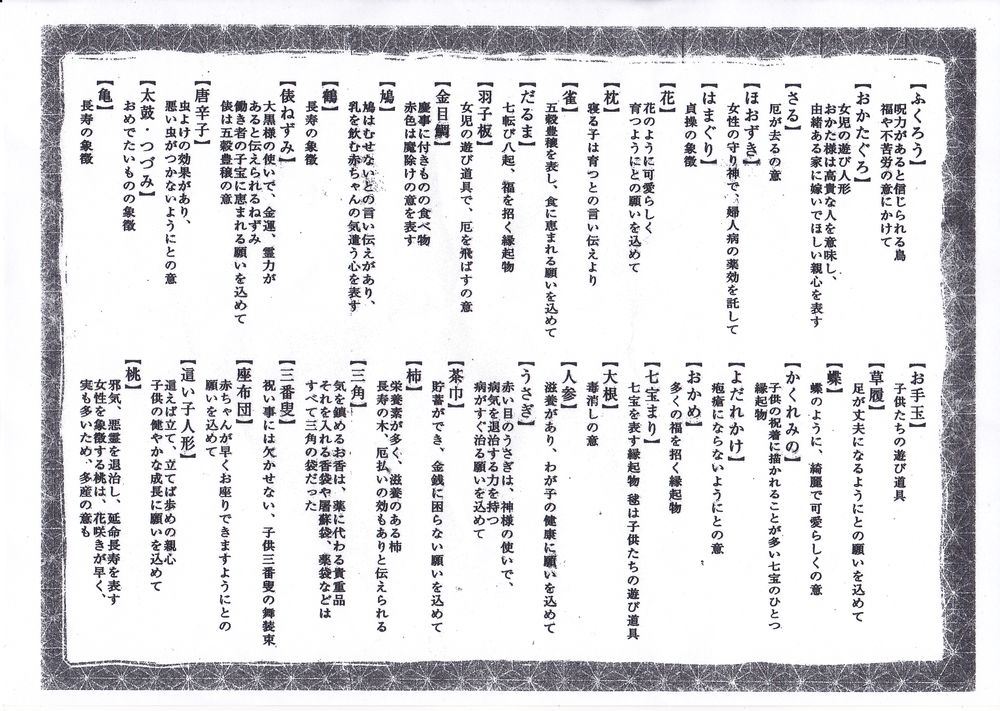 【ふくろう】
呪力があると信じられる鳥
福や不苦労の意にかけて
【おかたぐろ】
女児の遊び人形
おかた様は高貴な人を意味し、
由緒ある家に嫁いでほしい親心を表す
【さる】
厄が去るの意
【ほおずき】
女性の守り神で、婦人病の薬効を託して
【はまぐり】
貞操の象徴
【花】
花のように可愛らしく
育つようにとの願いを込めて
【枕】
寝る子は育つとの言い伝えより
【雀】
五穀豊穣を表し、食に恵まれる願いを込めて
【だるま】
七転び八起、福を招く縁起物
【羽子板】
女児の遊び道具で、厄を飛ばすの意
【金目鯛】
慶事に付きもの食べ物
赤色は魔除けの意を表す
【鳩】
鳩はむせないとの言い伝えがあり、
乳を飲む赤ちゃんの気遣う心を表す
【鶴】
長寿の象徴
【俵ねずみ】
大黒様の使いで、金運、霊力が
あると伝えられるねずみ
働き者の子宝に恵まれる願いを込めて
俵は五穀豊穣の意
【唐辛子】
虫よけの効果があり、
悪い虫がつかないようにとの意
【太鼓・つづみ】
おめでたいものの象徴
【亀】
長寿の象徴
【お手玉】
子供たちの遊び道具
【草履】
足が丈夫になるようにとの願いを込めて
【蝶】
蝶のように、綺麗で可愛らしくの意
【かくれみの】
子供の祝着に描かれることが多い七宝のひとつ
縁起物
【よだれかけ】
疱瘡にならないようにとの意
【おかめ】
多くの福を招く縁起物
【七宝まり】
七宝を表す縁起物 毬は子供たちの遊び道具
【大根】
毒消しの意
【人参】
滋養があり、わが子の健康に願いを込めて
【うさぎ】
赤い目のうさぎは、神様の使いで、
病気を退治する力を持つ
病がすぐ治る願いを込めて
【茶巾】
貯蓄ができ、金銭に困らない願いを込めて
【柿】
栄養素が多く、滋養のある柿
長寿の木、厄払いの効もありと伝えられる
【三角】
気を鎮めるお香は、薬に代わる貴重品
それを入れる香袋や屠蘇袋、薬袋などは
すべて三角の袋だった
【三番叟】
祝い事には欠かせない、子供三番叟の舞装束
【座布団】
赤ちゃんが早くお座りできますようにとの
願いを込めて
【這い子人形】
這えば立て、立てば歩めの親心
子供の健やかな成長に願いを込めて
【桃】
邪気、悪霊を退治し、延命長寿を表す
女性を象徴する桃は、花咲きが早く、
実も多いため、多産の意も